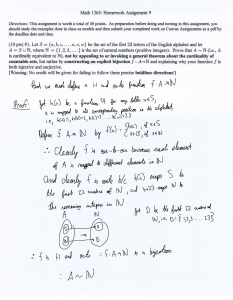 Math 1365: Homework Assignment 9
Directions: This assignment is worth a total of 40 points. As preparation before doing and turning in this assignment, you
should study the examples done in class as models and then submit your completed work on Canvas Assignments as a pdf by
the deadline date and time.
(10 pts) #1. Let S = {a, b, c, . . . , u, v, w} be the set of the first 23 letters of the English alphabet and let
A = S ∪ N, where N = {1, 2, 3, . . .} is the set of natural numbers (positive integers). Prove that A ~ N (i.e., A
is cardinally equivalent to N), not by appealing to or invoking a general theorem about the cardinality of
countable sets, but rather by constructing an explicit bijection f : A → N and explaining why your function f is
both injective and surjective.
[Warning: No credit will be given for failing to follow these precise boldface directions!]
we must define a and write function f: A→N
Proof: Let h(s) be a function for any letter x∈S,
x is mapped to its corresponding position in the alphabet,
i.e.,
Define f: A→N by f(x) =
∴ Clearly f is one-to-one because each element
of A is mapped to different elements in N
And clearly f is onto b/c h(x) maps S to
the first 23 numbers of N, and x+23 maps N to
the remaining integers in N
A N
Let D be the first 23 numbers of
N, i.e. D = {1, 2, 3, ... 23}
∴ f is and onto ∴ f: A→N is a bijection
∴ A ~ N